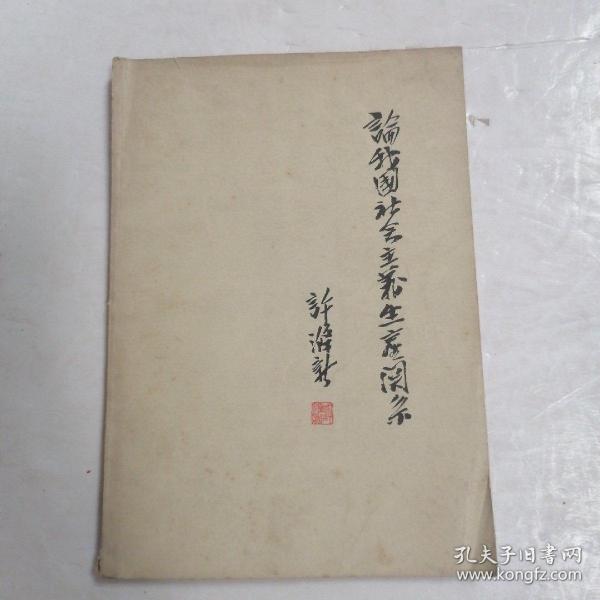 論我國社会主義生産関系
許滌新
孔夫子旧书网
www.kongfz.com